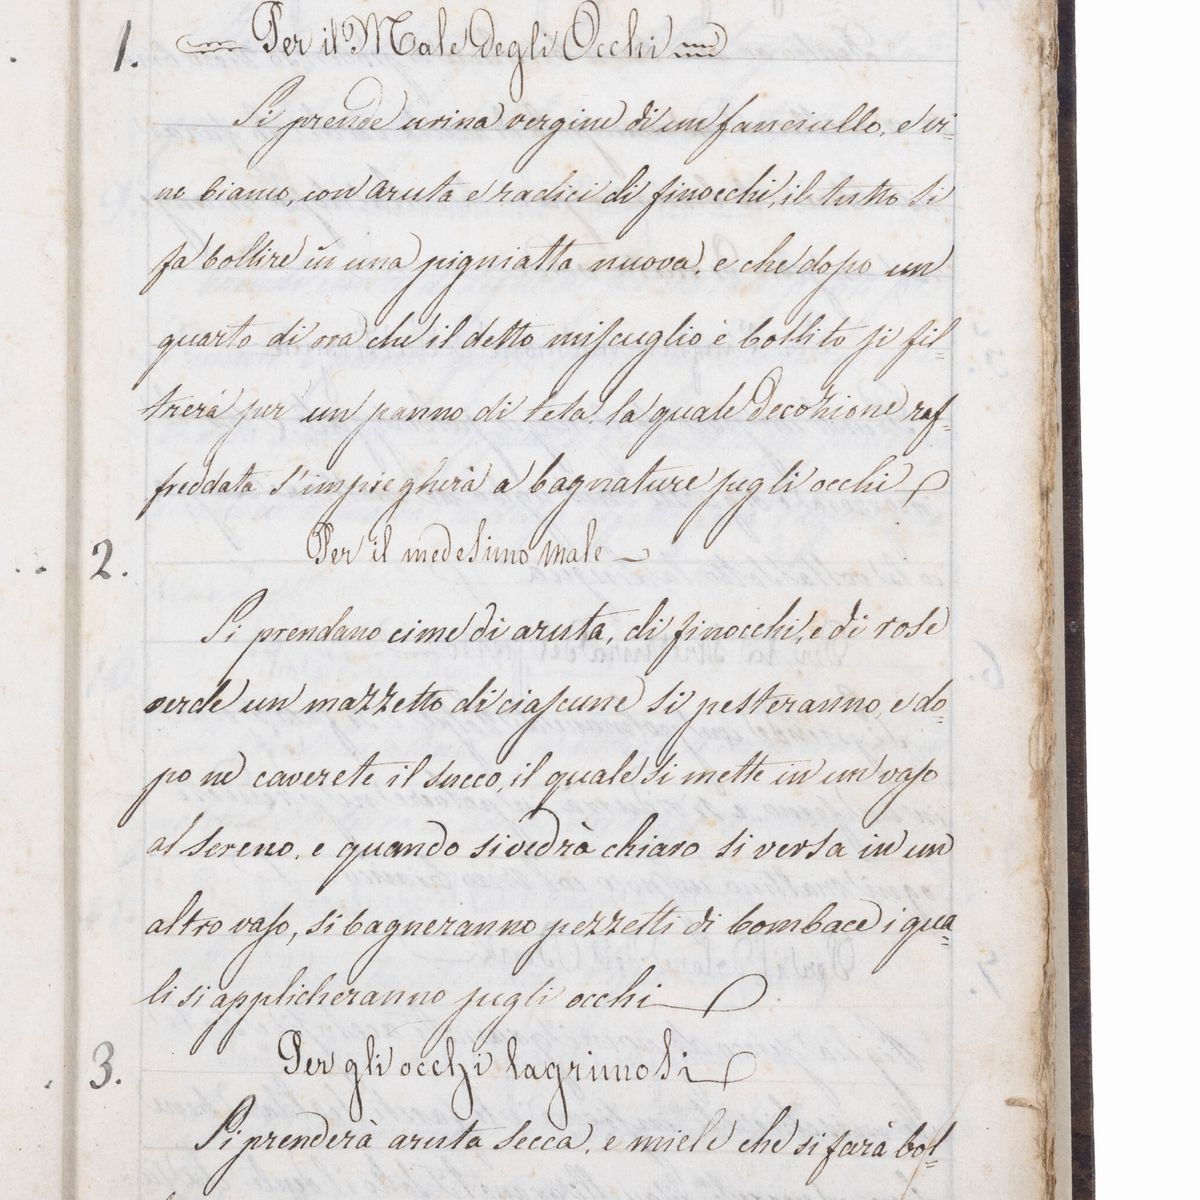 1. Per il Male degli Occhi
Si prende urina vergine di un fanciullo, e vi-
no biamo, con aruta e radici di finocchi, il tutto si
fà bollire in una pigniatta nuova, e che dopo un
quarto di ora che il detto miscuglio è bollito si fil-
trerà per un panno di tela, la quale decozione raf-
freddata s'impiegherà a bagnature sugli occhi
2. Per il medesimo male
Si prendano cime di aruta, di finocchi, e di rose
verde un mazzetto di ciascune si pesteranno, e do-
po ne caverete il succo, il quale si mette in un vaso
al sereno, e quando si vedrà chiaro si versa in un
altro vaso, si bagneranno pezzetti di bombace i qua-
li si applicheranno sugli occhi
3. Per gli occhi lagrimosi
Si prenderà aruta secca, e miele che si farà bol-